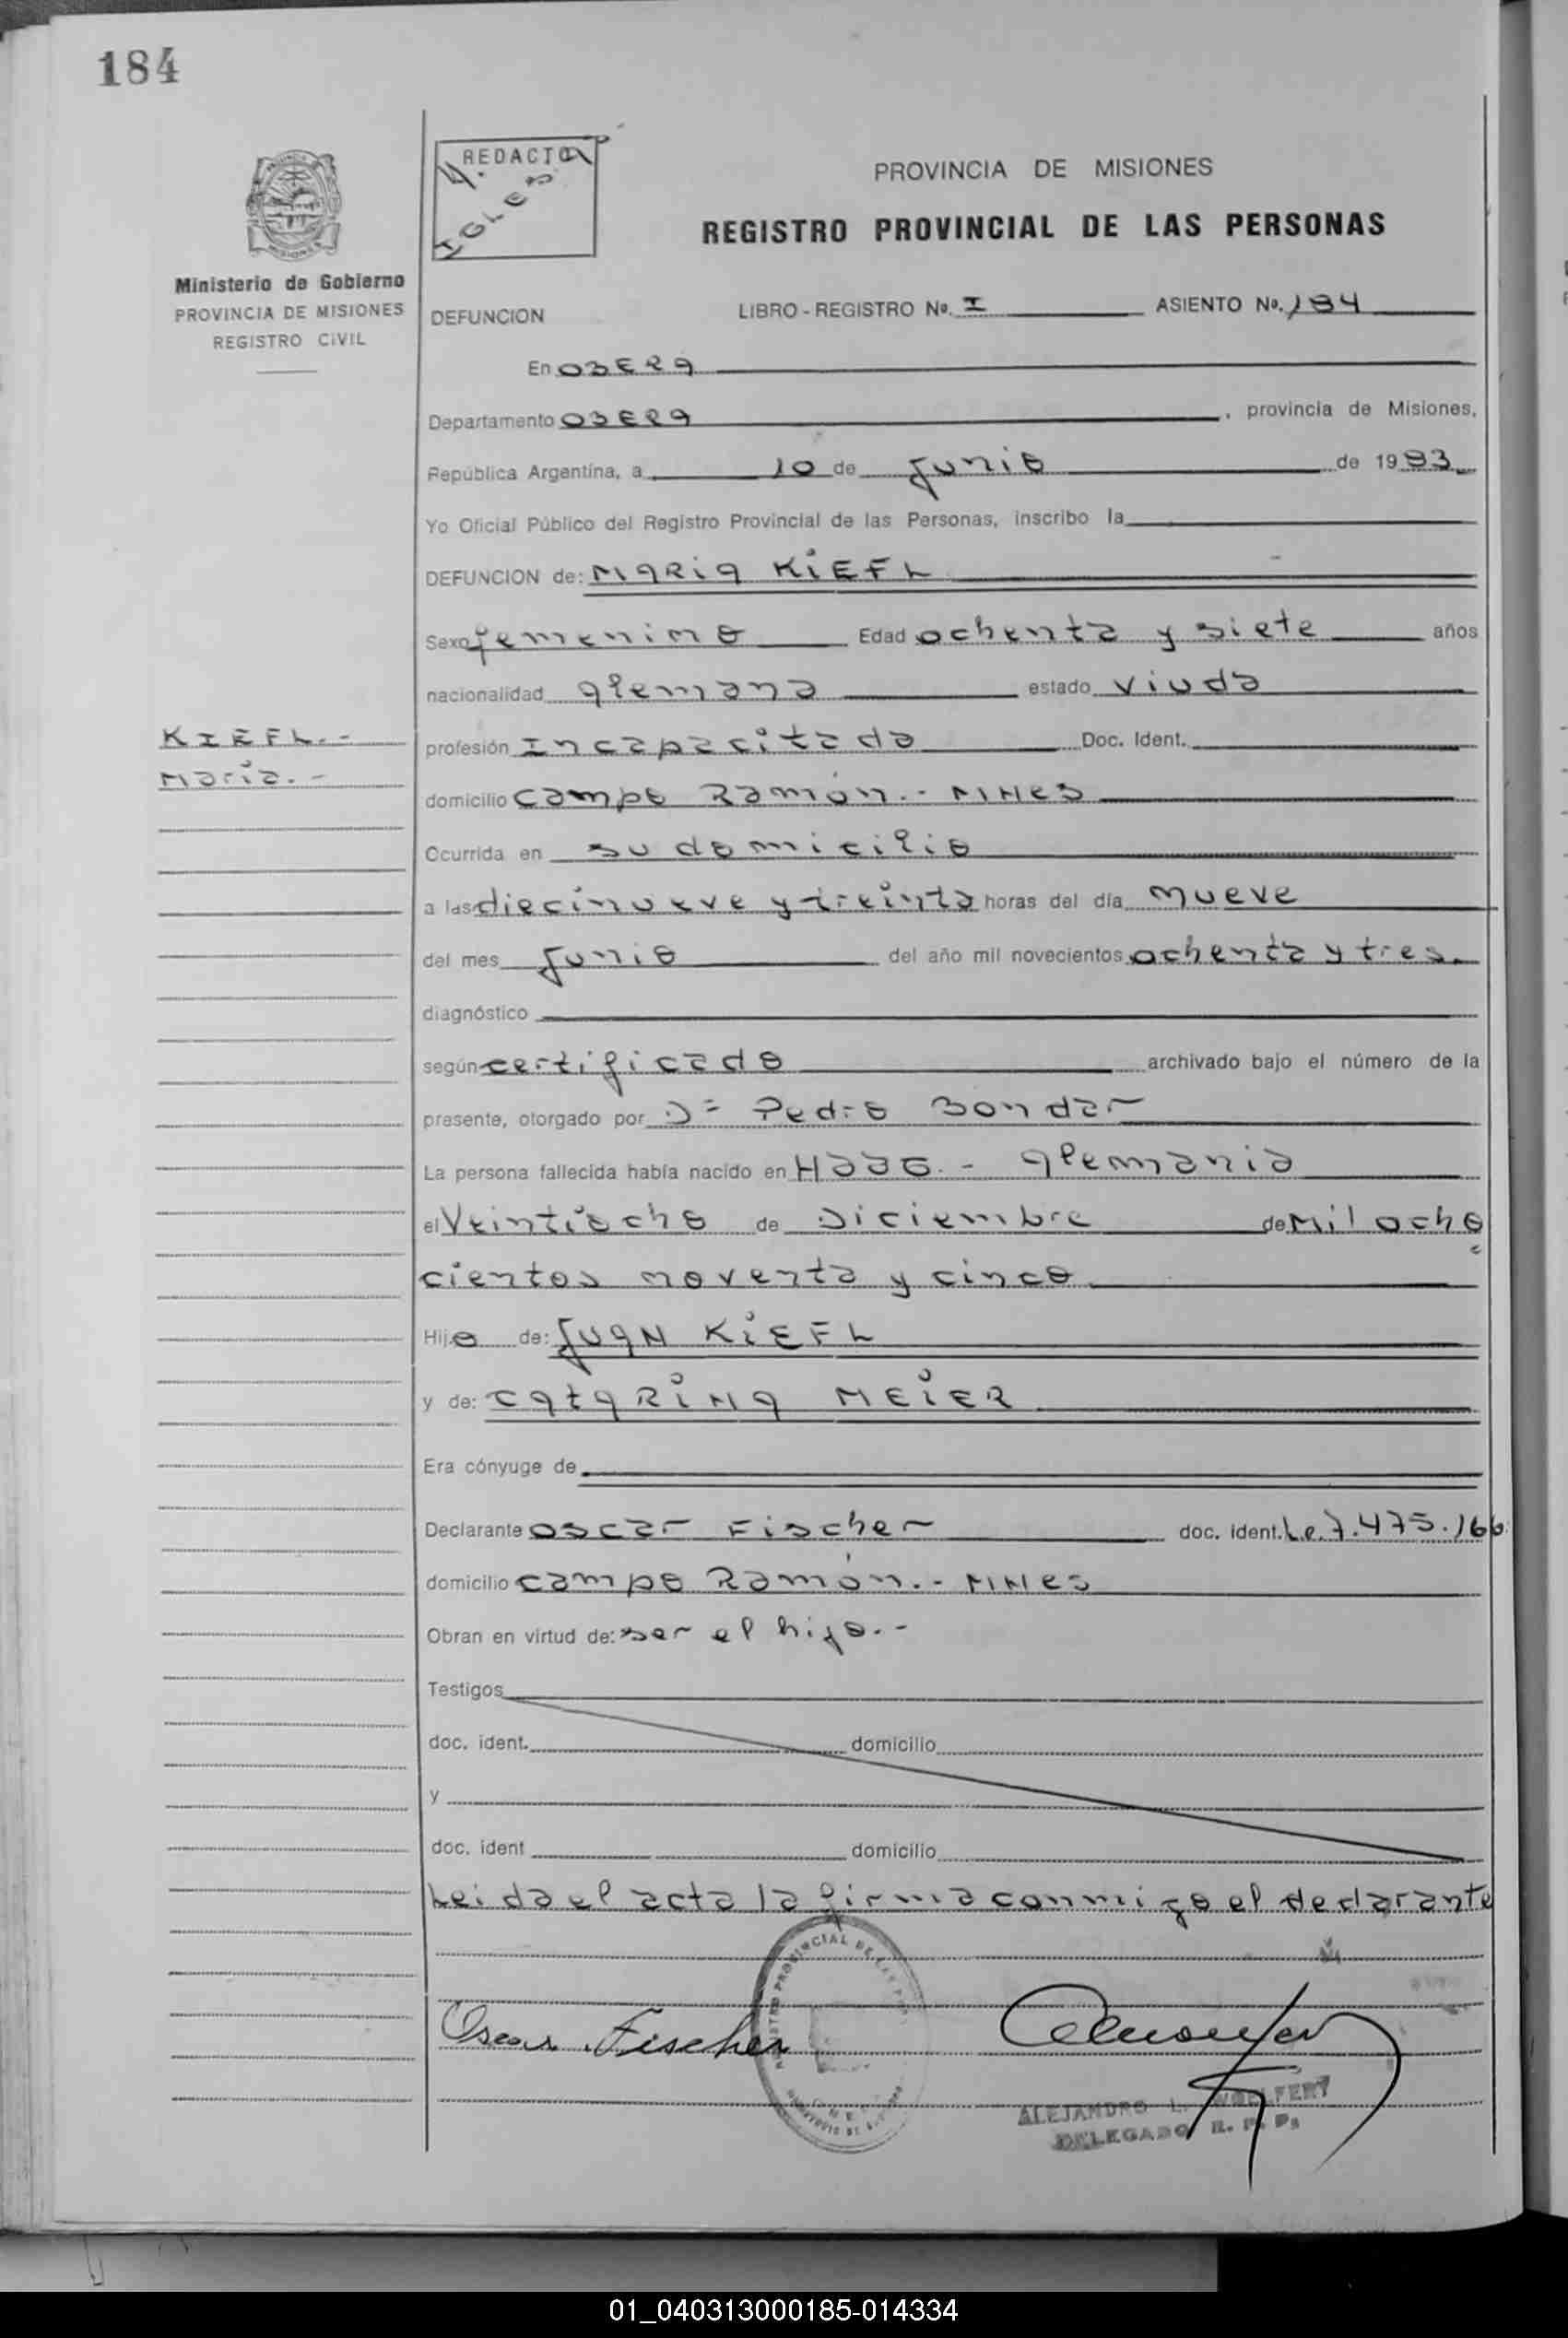 184
REDACTOR
A. IGLES
PROVINCIA DE MISIONES
REGISTRO PROVINCIAL DE LAS PERSONAS
Ministerio de Gobierno
PROVINCIA DE MISIONES
REGISTRO CIVIL
DEFUNCION LIBRO - REGISTRO No. I ASIENTO No. 184
En OBERA
Departamento OBERA, provincia de Misiones,
República Argentina, a 10 de Junio de 1983
Yo Oficial Público del Registro Provincial de las Personas, inscribo la
DEFUNCION de: MARIA KIEFL
Sexo femenino Edad ochenta y siete años
nacionalidad Alemana estado Viuda
KIEFL.-
Maria.-
profesión Incapacitada Doc. Ident.
domicilio Campo Ramón.- MNES
Ocurrida en su domicilio
a las diecinueve y treinta horas del día nueve
del mes Junio del año mil novecientos ochenta y tres.
diagnóstico
según certificado archivado bajo el número de la
presente, otorgado por Dr Pedro Bondar
La persona fallecida había nacido en - Alemania
el Veintiocho de Diciembre de Mil ocho
cientos noventa y cinco
Hijo de: JUAN KIEFL
y de: CATARINA MEIER
Era cónyuge de
Declarante Oscar Fischer doc. ident. L.e. 7.475.166
domicilio Campo Ramón.- MNES
Obran en virtud de: ser el hijo.-
Testigos
doc. ident. domicilio
y
doc. ident domicilio
Leida el acta la firma conmigo el declarante
Oscar Fischer
REGISTRO PROVINCIAL DE LAS
ALEJANDRO L.
DELEGADO R. P. P.
01_040313000185-014334